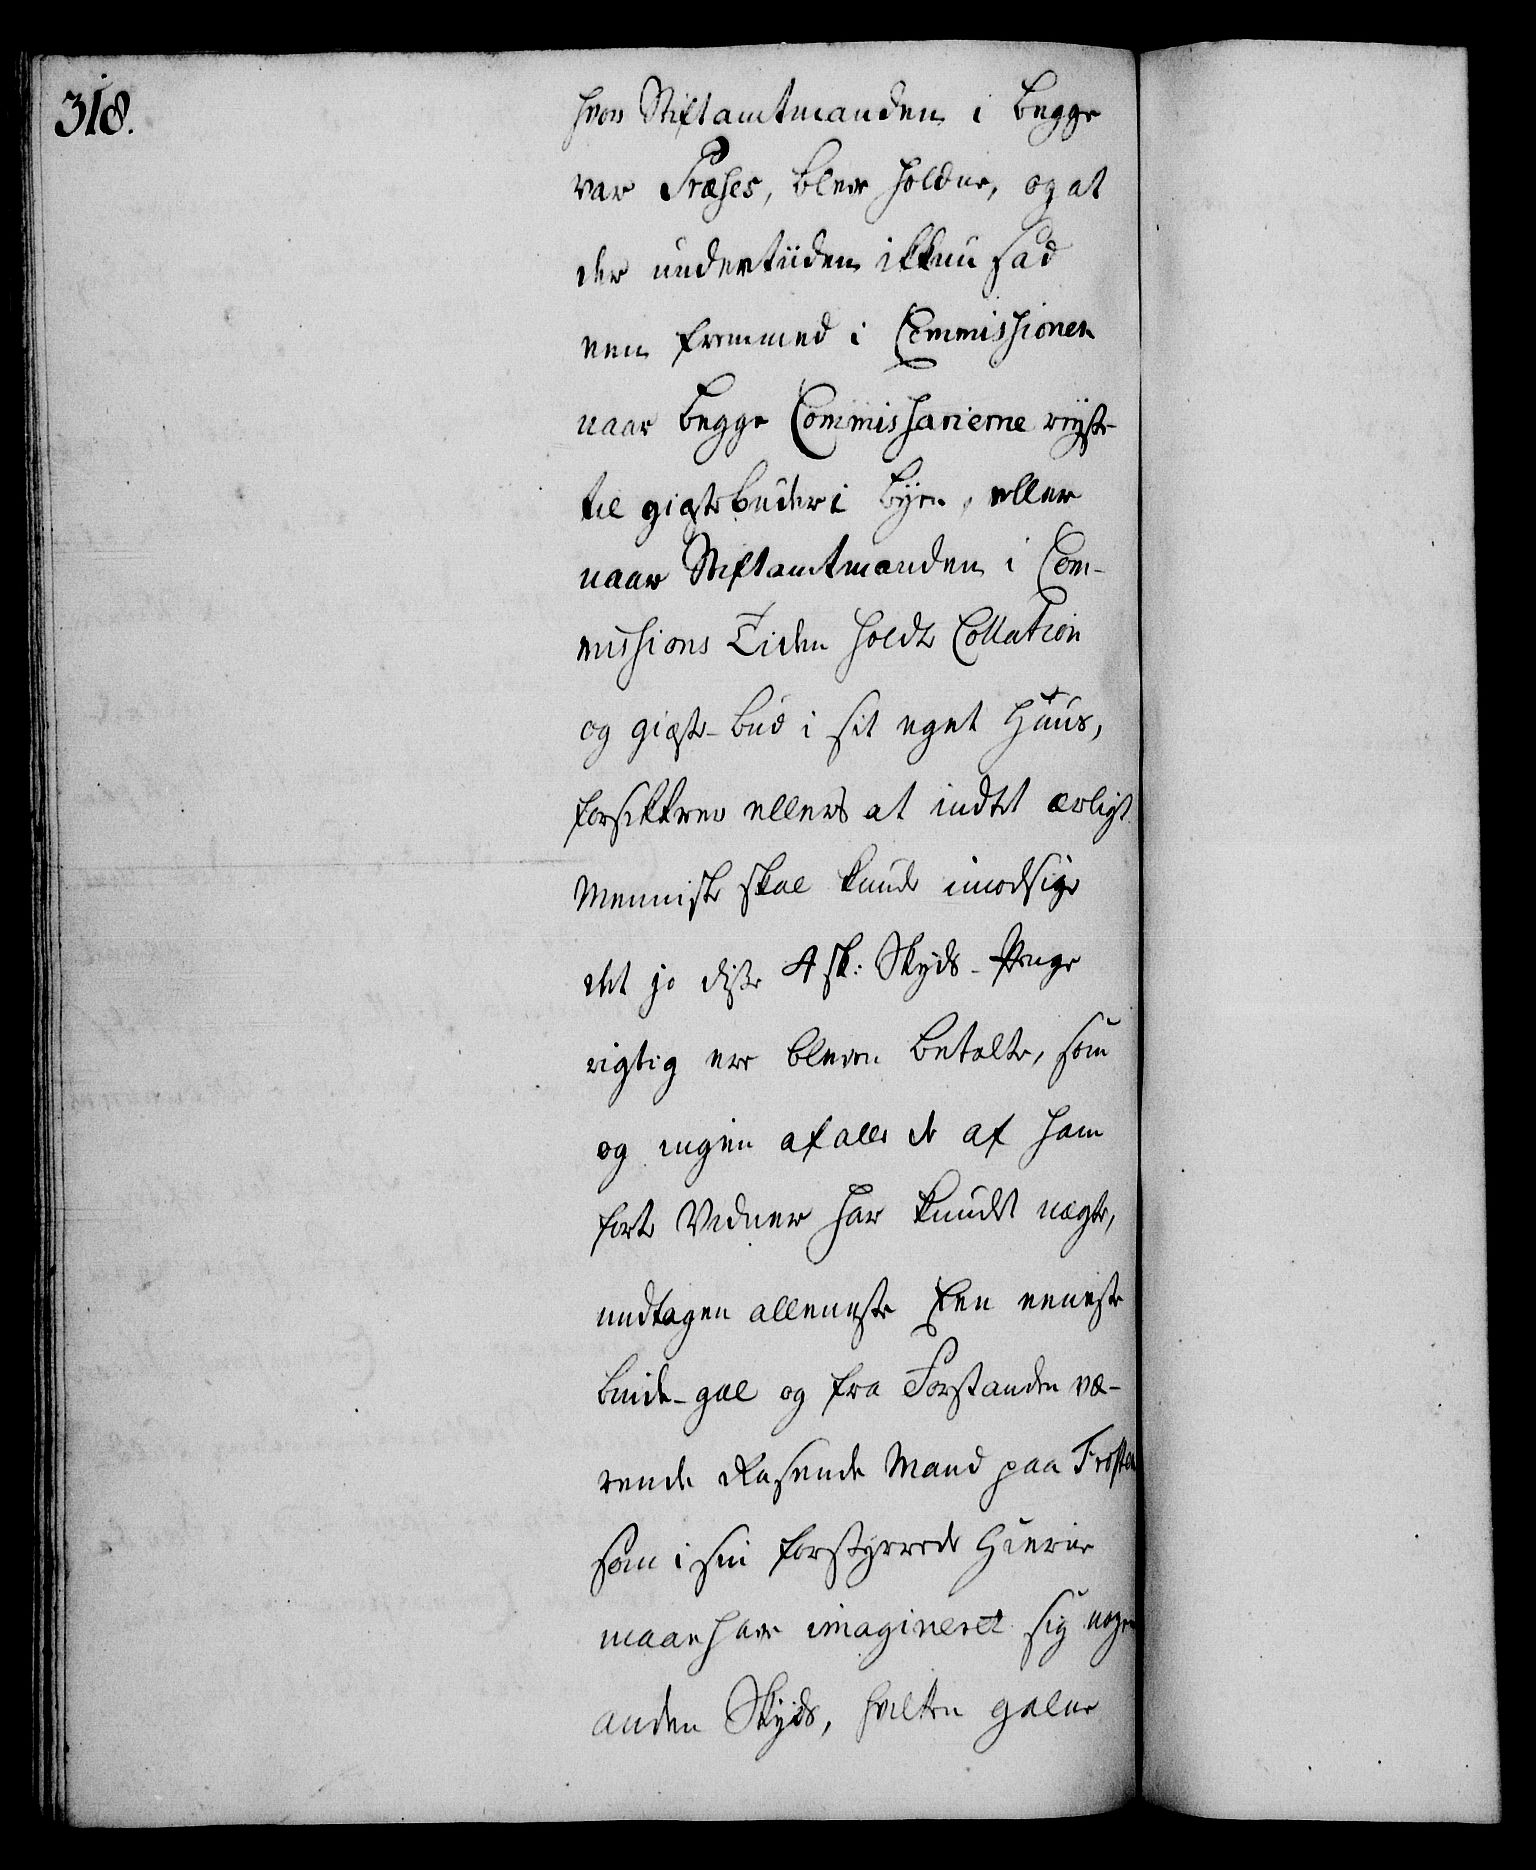 318.
hvor Stiftamtmanden i begge
var Præses, blev holdne, og at
der undertiiden ikkun sad
een fremmed i Commissionen
naar begge Commissarierne reyste
til giæstebuder i byen, eller
naar Stiftamtmanden i Com-
missions Tiden holdt Collation
og giæste-bud i sit eget Huus,
forsikkrer ellers at indtet ærligt
Menniske skal kunde imodsige
det jo disse 4 sk: Skyds-Penge
rigtig ere bleven betalte, som
og ingen af alle de af ham
førte Vidner har kundet nægte,
undtagen alleneste Een eeneste
binde-gal og fra Forstanden væ-
rende Rasende Mand paa Frosten
som i sin forstyrrede Hierne
maae have imagineret sig nogen
anden Skyds, hvilken galne